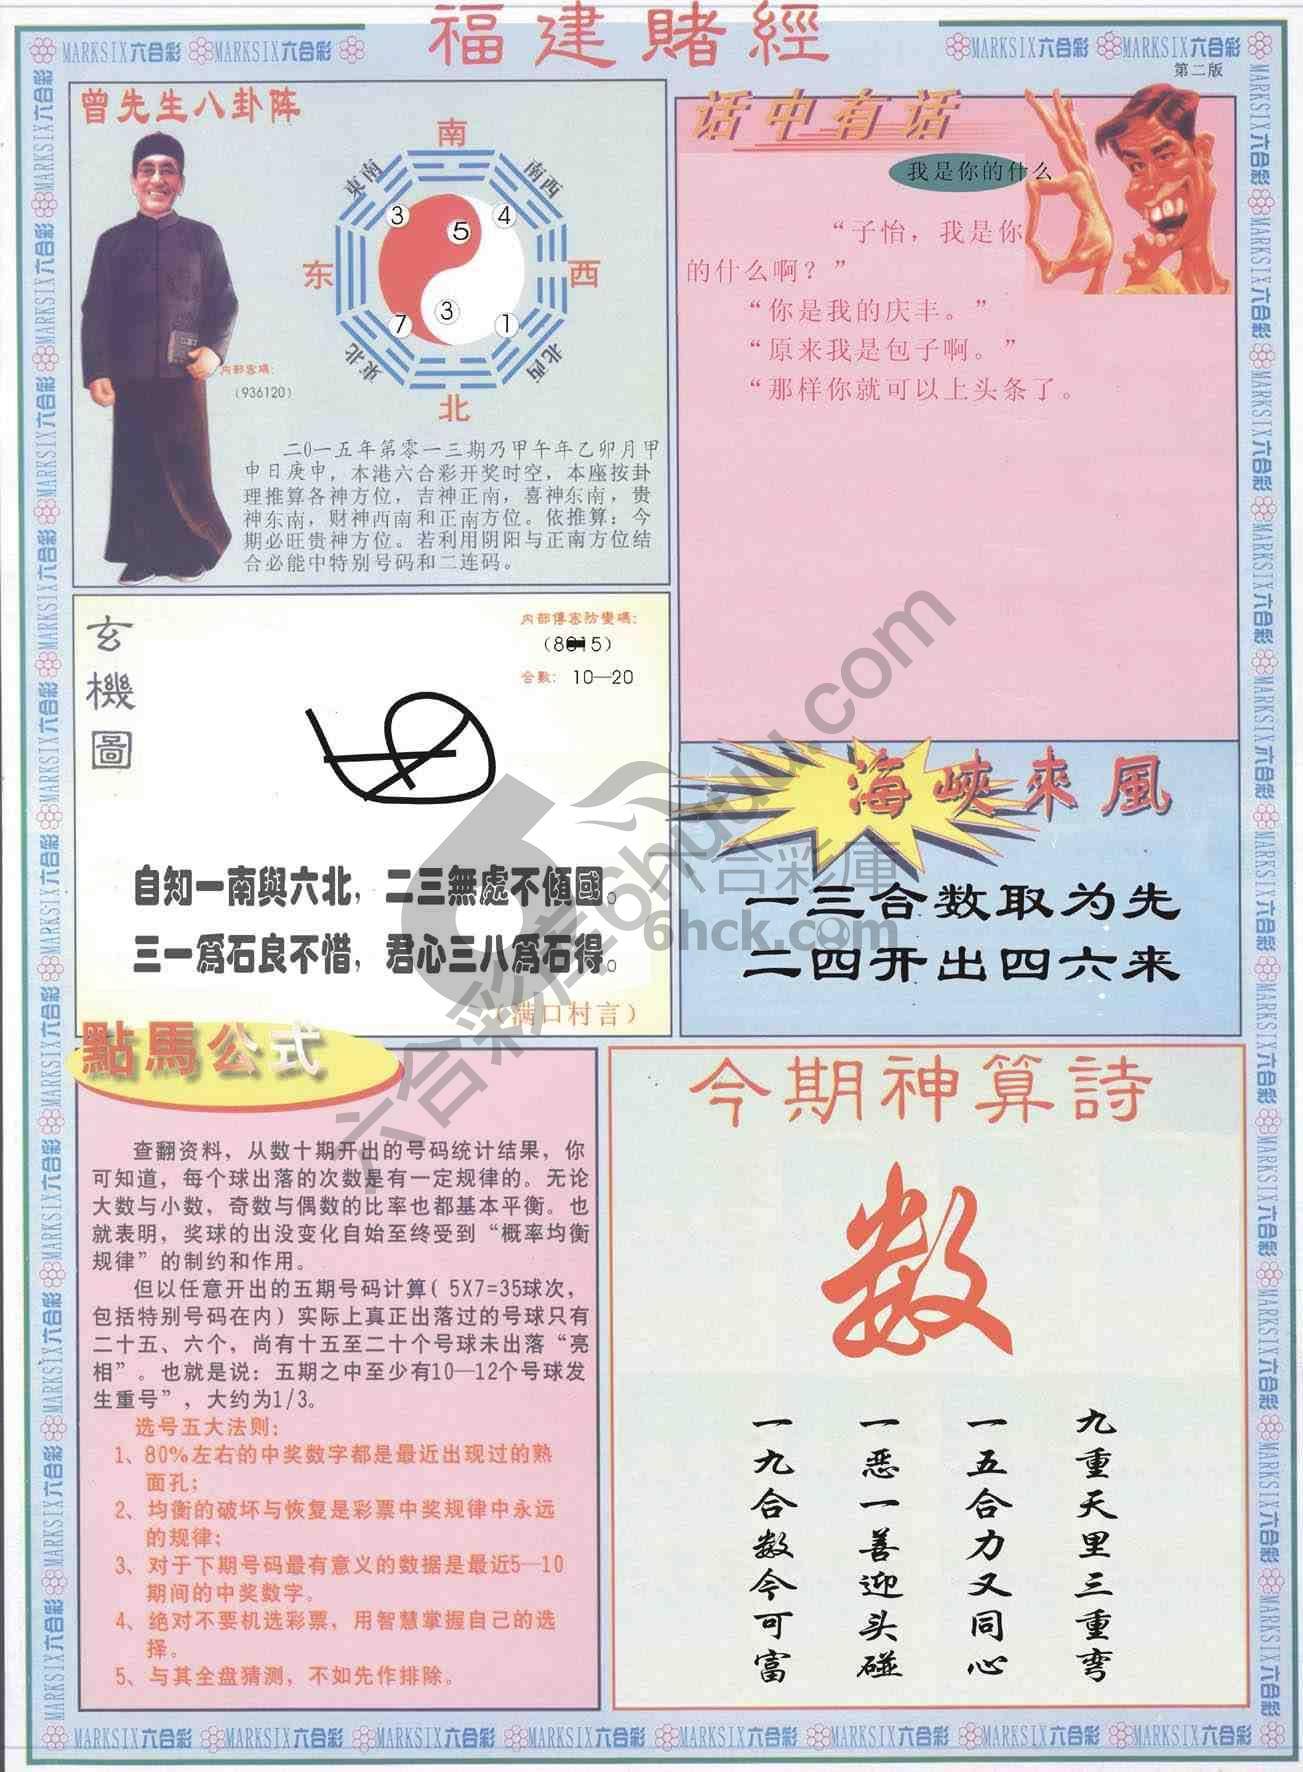 福建賭經
MARKSIX六合彩 MARKSIX六合彩
MARKSIX六合彩 MARKSIX六合彩
第二版
曾先生八卦阵
南
東南
南西
3
5
4
东
西
7
3
1
東北
北西
北
内部密碼:
(936120)
二0一五年第零一三期乃甲午年乙卯月甲
申日庚申，本港六合彩开奖时空，本座按卦
理推算各神方位，吉神正南，喜神东南，贵
神东南，财神西南和正南方位。依推算：今
期必旺贵神方位。若利用阴阳与正南方位结
合必能中特别号码和二连码。
话中有话
我是你的什么
“子怡，我是你
的什么啊？”
“你是我的庆丰。”
“原来我是包子啊。”
“那样你就可以上头条了。
玄機圖
内部傳密防變碼:
合數: 10—20
自知一南與六北，二三無處不傾國。
三一爲石良不惜，君心三八爲石得。
（满口村言）
海峽來風
一三合数取为先
二四开出四六来
點馬公式
查翻资料，从数十期开出的号码统计结果，你
可知道，每个球出落的次数是有一定规律的。无论
大数与小数，奇数与偶数的比率也都基本平衡。也
就表明，奖球的出没变化自始至终受到“概率均衡
规律”的制约和作用。
但以任意开出的五期号码计算( 5X7=35球次，
包括特别号码在内) 实际上真正出落过的号球只有
二十五、六个，尚有十五至二十个号球未出落“亮
相”。也就是说：五期之中至少有10—12个号球发
生重号”，大约为1/3。
选号五大法则:
1、80%左右的中奖数字都是最近出现过的熟
面孔;
2、均衡的破坏与恢复是彩票中奖规律中永远
的规律;
3、对于下期号码最有意义的数据是最近5—10
期间的中奖数字。
4、绝对不要机选彩票，用智慧掌握自己的选
择。
5、与其全盘猜测，不如先作排除。
今期神算詩
数
九重天里三重弯
一五合力又同心
一恶一善迎头碰
一九合数今可富
六合彩库6huuu.com
六合彩庫
6hck.com
MARKSIX六合彩 MARKSIX六合彩 MARKSIX六合彩 MARKSIX六合彩 MARKSIX六合彩 MARKSIX六合彩 MARKSIX六合彩 MARKSIX六合彩